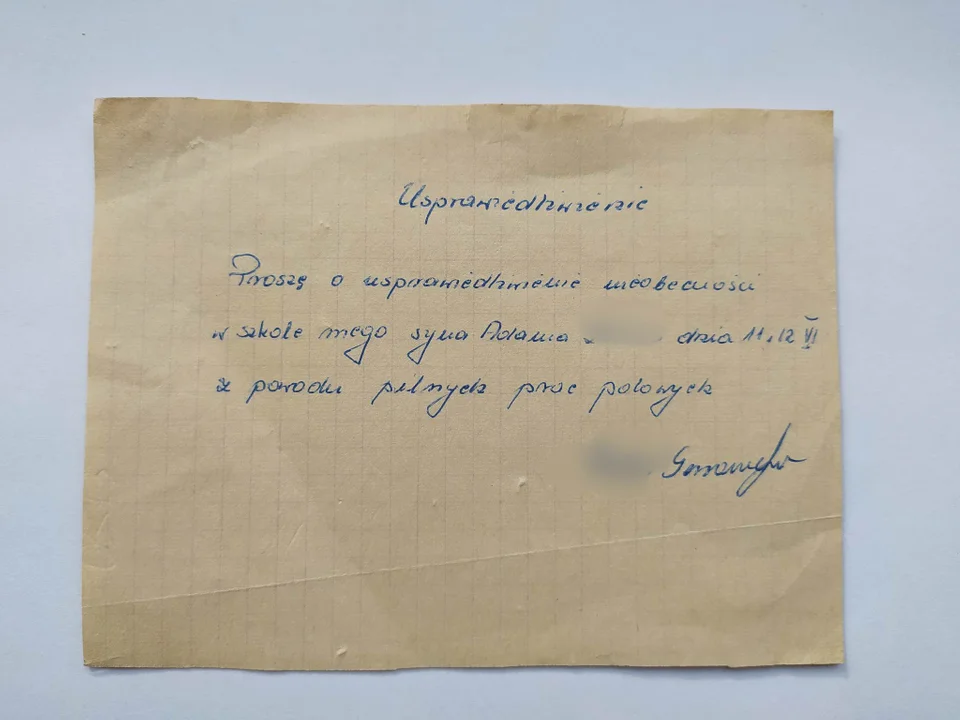 Usprawiedliwienie
Proszę o usprawiedliwienie nieobecności
w szkole mego syna Adama dnia 11, 12 VI
z powodu pilnych prac polowych